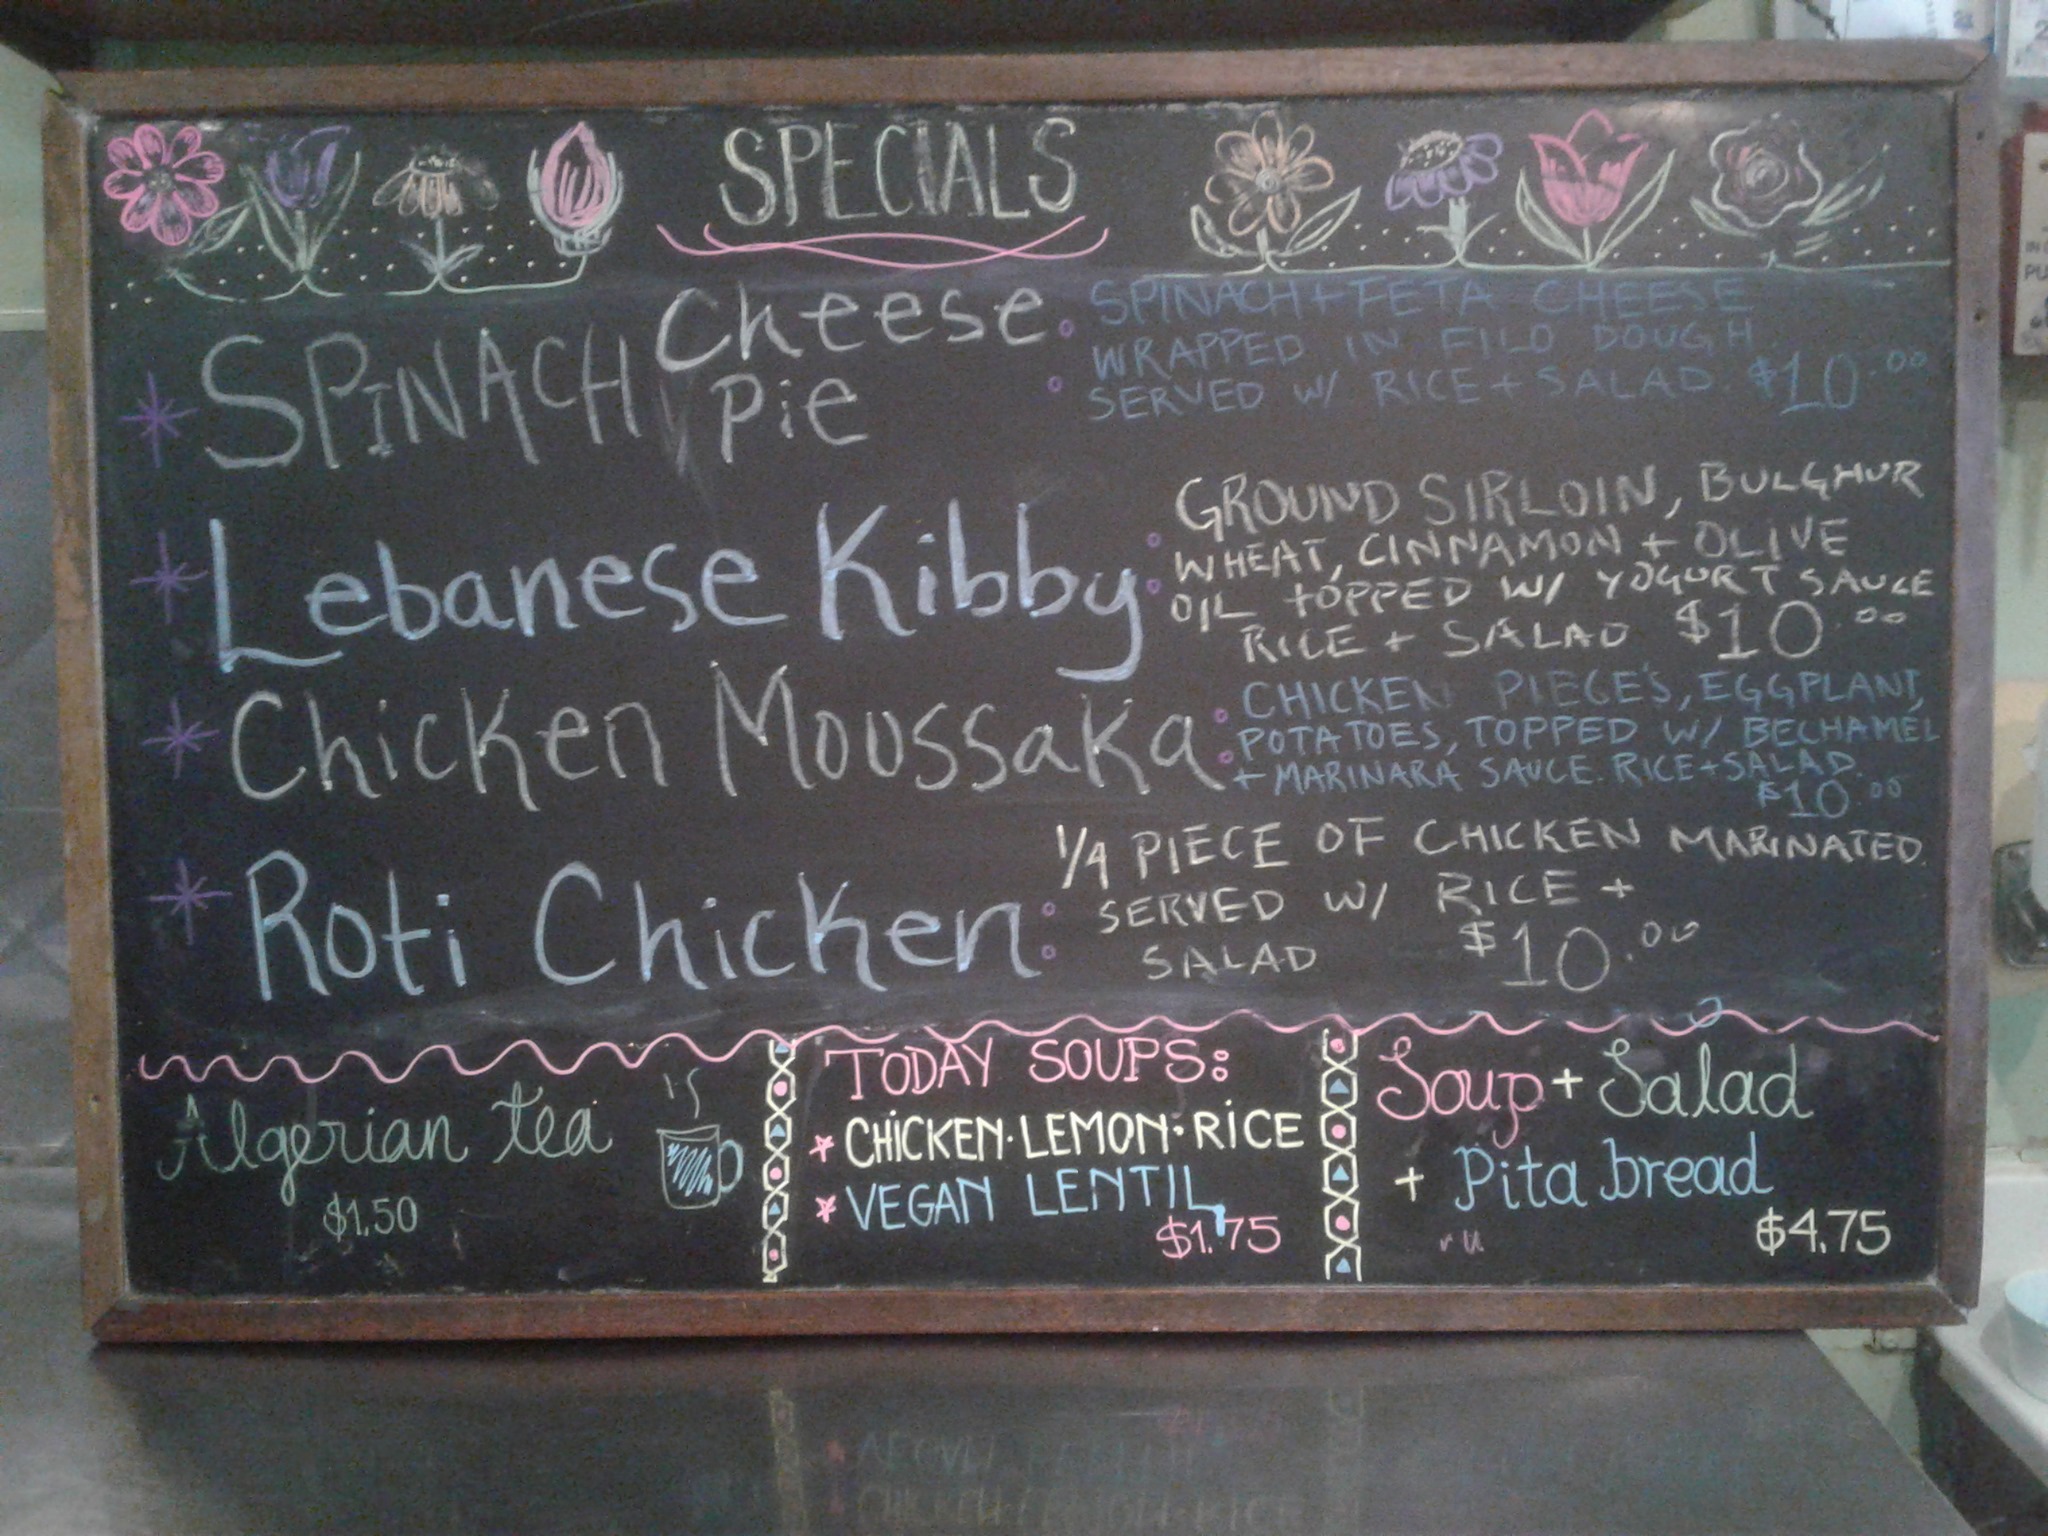 SPECIALS
SPINACH Cheese Pie
SPINACH + FETA CHEESE
WRAPPED IN FILO DOUGH.
SERVED W/ RICE + SALAD. $10.00
Lebanese Kibby:
GROUND SIRLOIN, BULGHUR
WHEAT, CINNAMON + OLIVE
OIL TOPPED W/ YOGURT SAUCE
RICE + SALAD $10.00
Chicken Moussaka:
CHICKEN PIECE'S, EGGPLANT,
POTATOES, TOPPED W/ BECHAMEL
+ MARINARA SAUCE. RICE + SALAD.
$10.00
Roti Chicken:
1/4 PIECE OF CHICKEN MARINATED.
SERVED W/ RICE +
SALAD $10.00
Algerian tea
$1.50
TODAY SOUPS:
CHICKEN·LEMON·RICE
VEGAN LENTIL
$1.75
Soup + Salad
+ Pita bread
$4.75